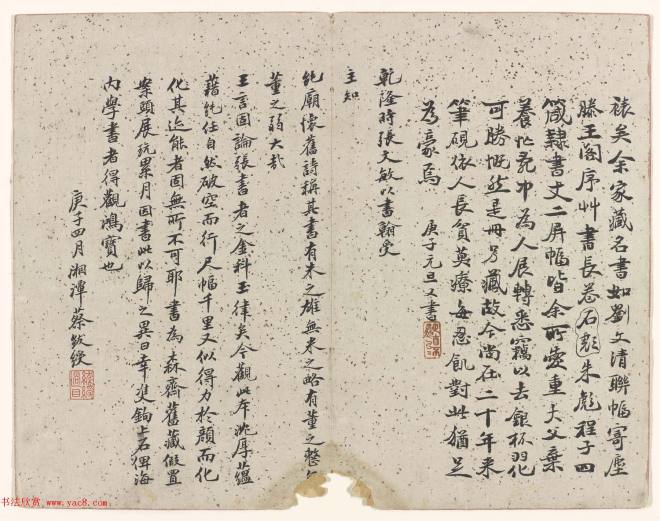 裱矣余家藏名書如劉文清聯幅寄塵
滕王閣序艸書長卷石彪朱彪程子四
箴隸書丈二屏幅皆余所愛重大父棄
養忙亂中為人展轉悉竊以去銀杯羽化
可勝慨然是冊另藏故今尚在二十年來
筆硯依人長貧莫療每忍飢對此猶足
為豪焉
庚子元旦又書
乾隆時張文敏以書翰受
主知
純廟懷舊詩稱其書有米之雄無米之略有董之整無
董之弱大哉
王言固論張書者之金科玉律矣今觀此冊沈厚蘊
藉純任自然破空而行尺幅千里又似得力於顏而化
化其迹能者固無所不可耶書為森齋舊藏假置
案頭展玩累月因書此以歸之異日幸雙鉤上石俾海
內學書者得觀鴻寶也
庚子四月湘潭蔡
书法欣赏 www.yac8.com